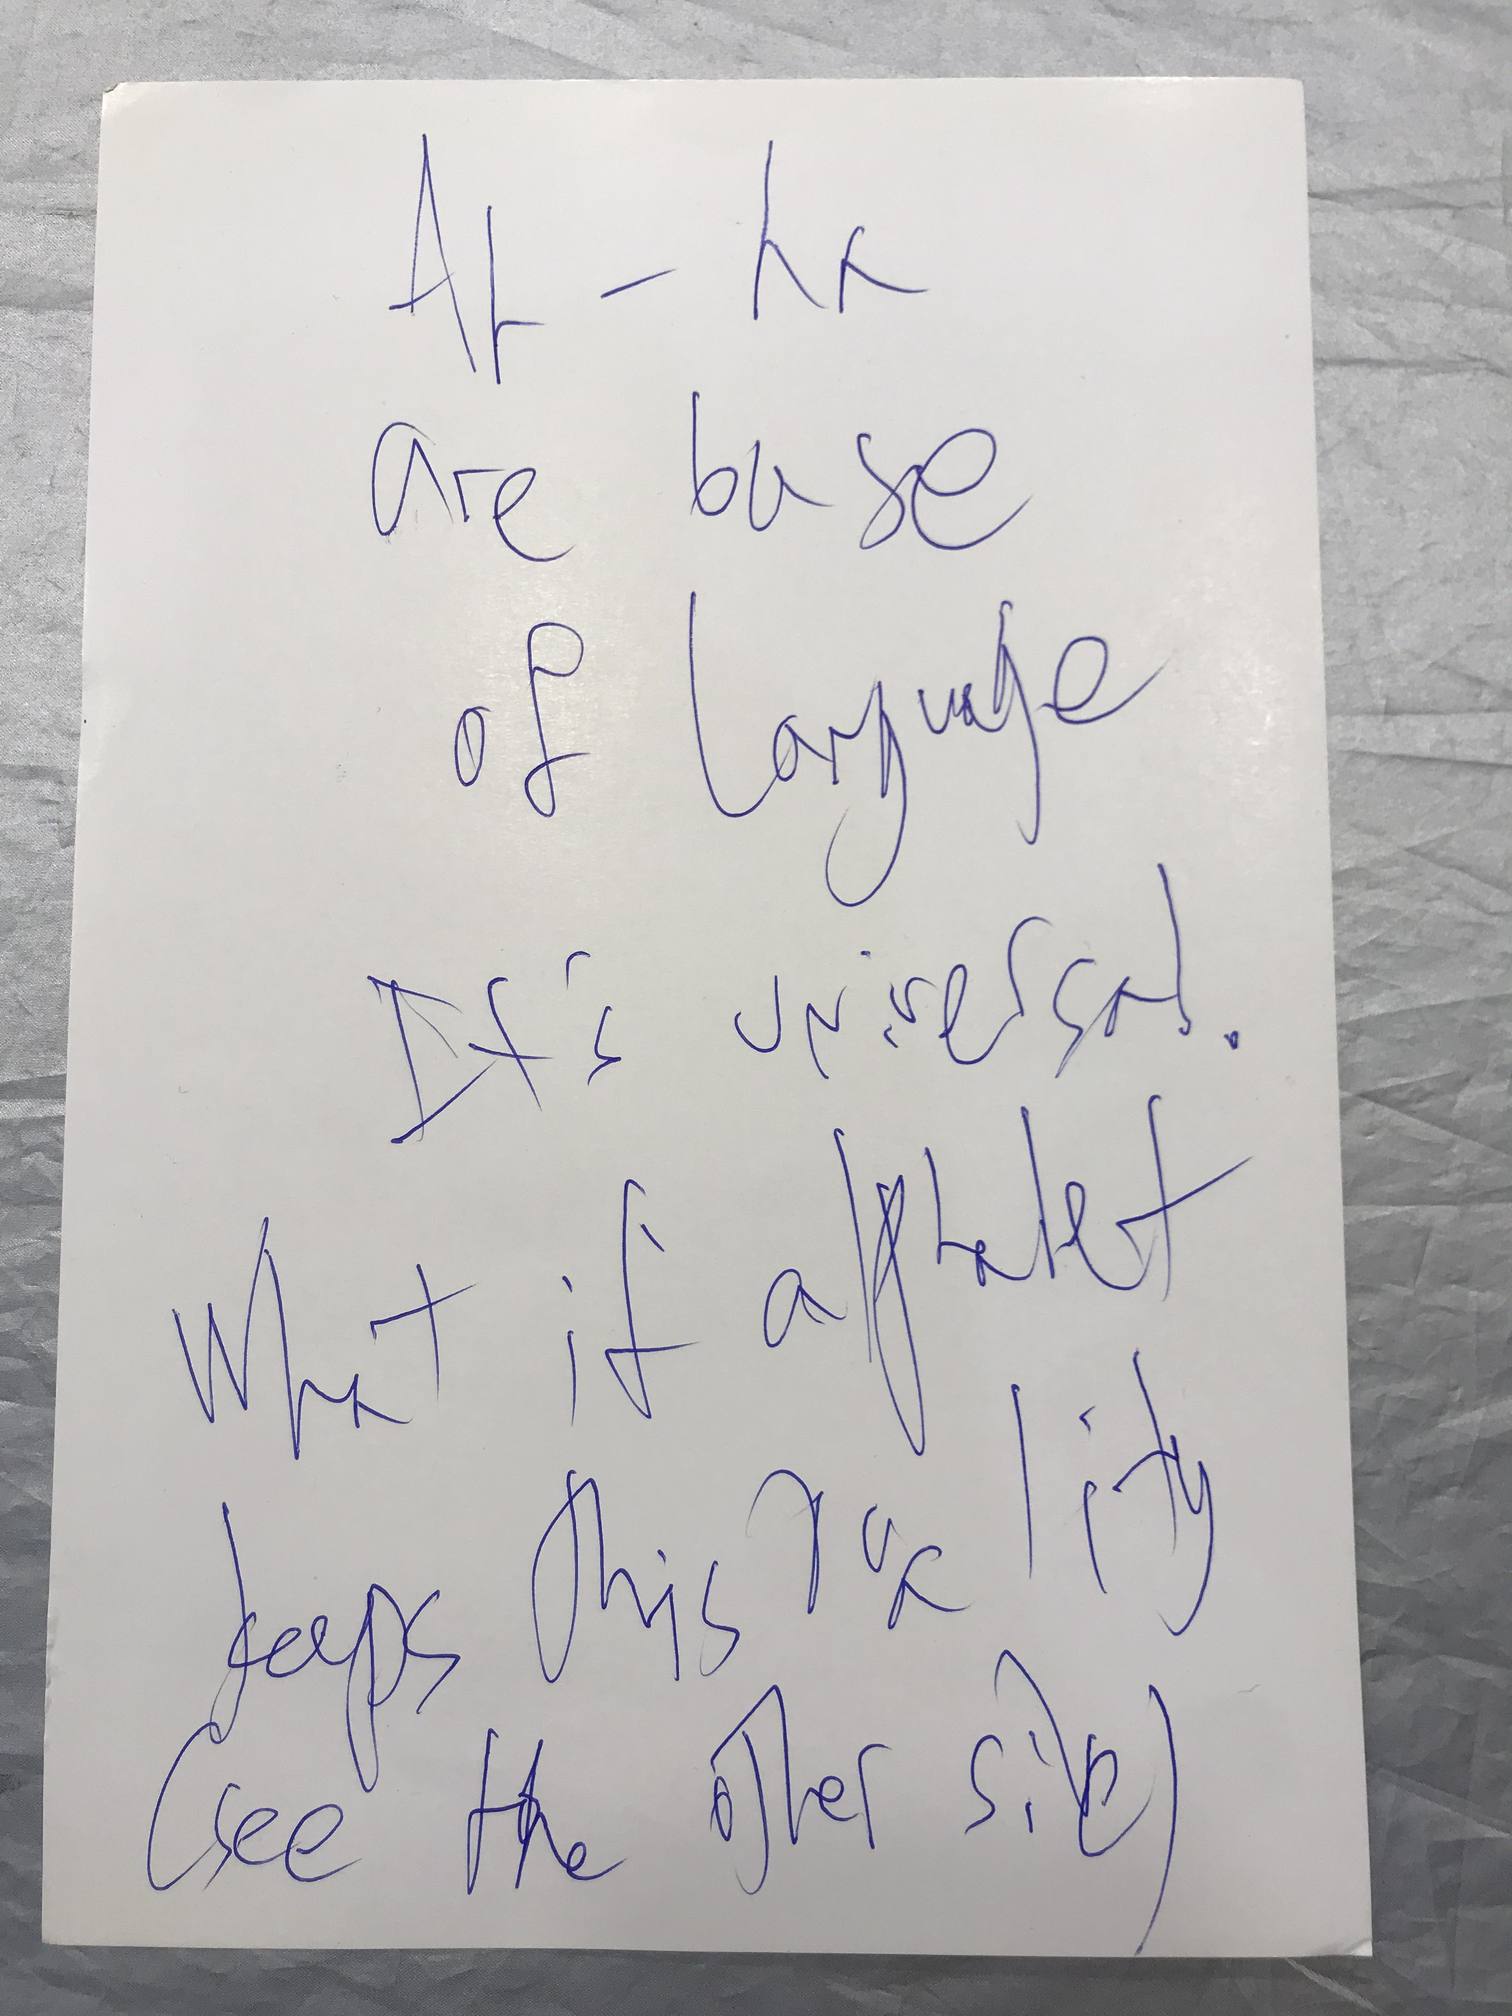 Ar - ha
are base
of language
It's universal.
What if alphabet
keeps this
(see the other side)